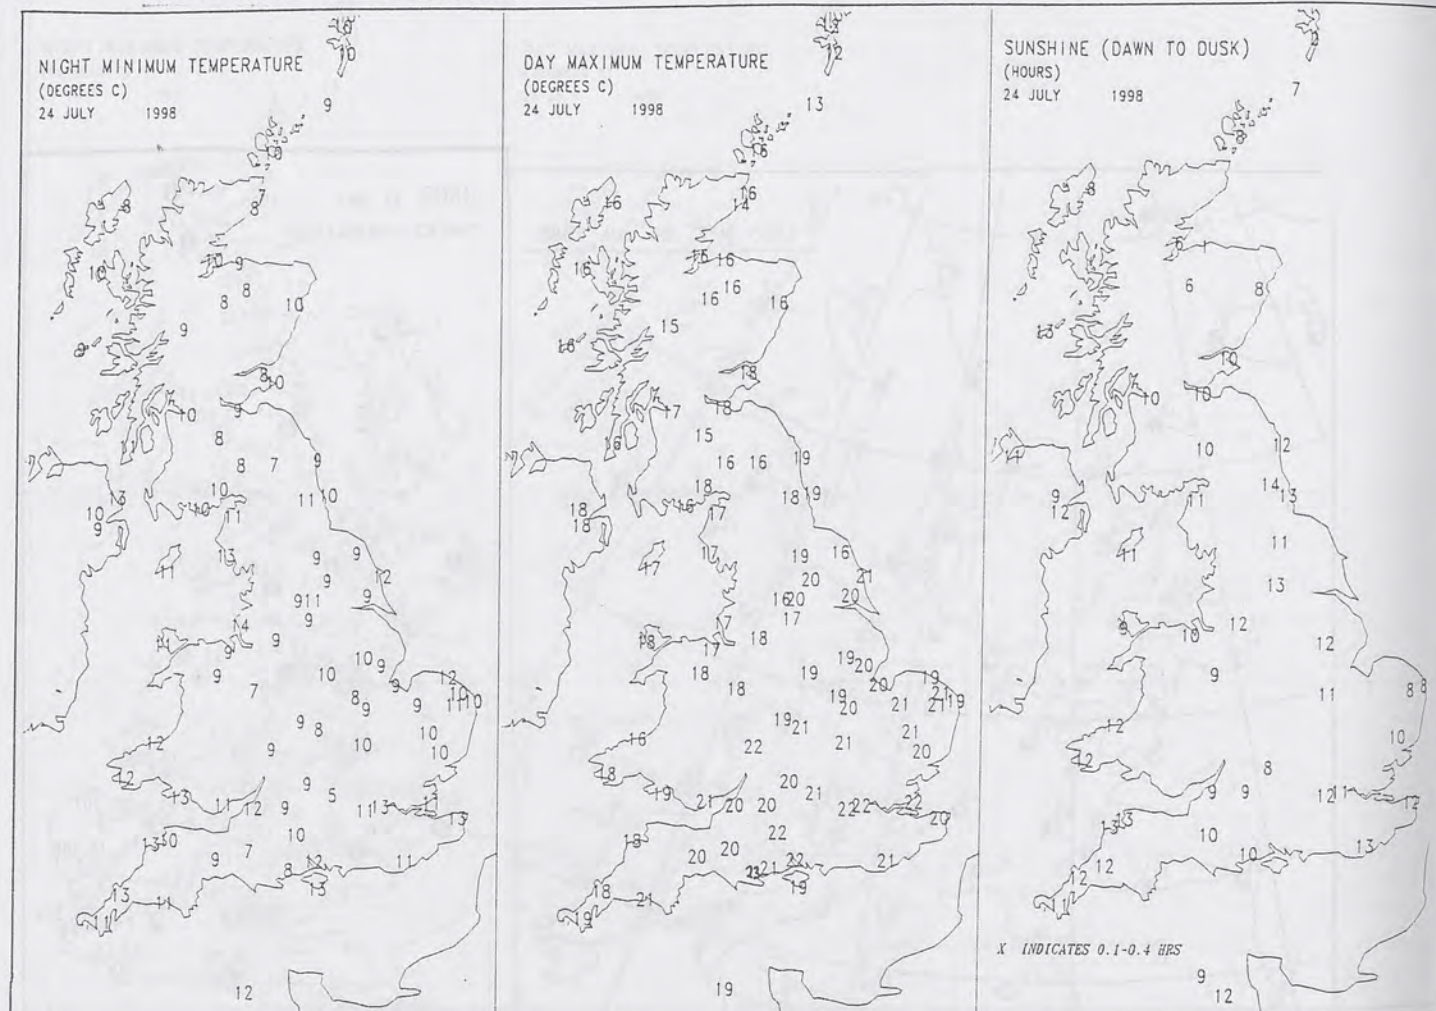 NIGHT MINIMUM TEMPERATURE
(DEGREES C)
24 JULY 1998
10
9
7
8
8
10
9
10
8
8
10
9
9
8
10
10
9
8
9
8
7
10
13
10
9
10
11
10
11
13
11
9
9
12
9
9
9 11
9
14
9
11
9
9
10
9
10
12
7
8
9
9
9
11
10
9
8
12
9
10
10
10
12
9
5
13
11
12
9
11
13
13
10
7
9
8
12
13
11
13
11
11
12
DAY MAXIMUM TEMPERATURE
(DEGREES C)
24 JULY 1998
12
13
16
16
14
16
16
16
16
16
16
16
15
16
18
17
18
15
16
16
16
19
18
18
19
18
18
16
17
17
17
19
16
20
21
16 20
20
17
17
18
18
17
18
18
19
19
20
20
19
19
20
21
21
21
19
19
21
16
22
21
21
20
18
19
20
21
21
20
20
22
22
22
20
18
22
20
20
22
21
21
19
18
21
19
19
SUNSHINE (DAWN TO DUSK)
(HOURS)
24 JULY 1998
7
8
8
6
8
13
10
10
10
10
12
14
13
9
12
11
11
11
13
12
9
10
12
9
11
8 8
12
12
10
8
9
9
12
11
12
13
13
10
10
13
12
12
11
X INDICATES 0.1-0.4 HRS
9
12